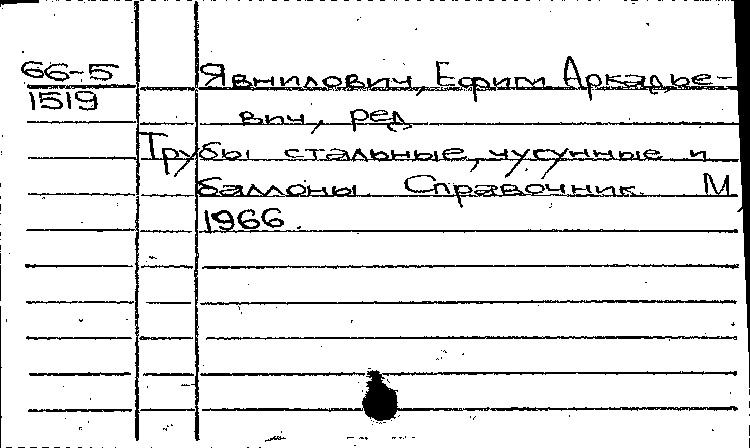 66-5
1519
Явнилович, Ефим Аркадье-
вич, ред
Трубы стальные, чугунные и
баллоны. Справочник. М,
1966.